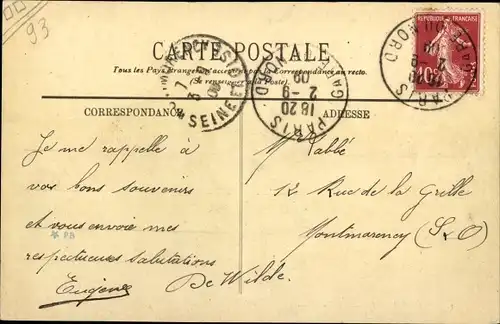 93
CARTE POSTALE
Tous les Pays étrangers n'acceptent pas la Correspondance au recto.
(Se renseigner à la Poste).
CORRESPONDANCE
ADRESSE
REPUBLIQUE FRANÇAISE
10c
PARIS
GARE DU NORD
18 20
2 - 9
09
PARIS
GARE DU NORD
SEINE
Je me rappelle à
vos bons souvenirs
et vous envoie mes
respectueuses salutations
Eugène De Wilde.
M Labbé
12 Rue de la Grille
Montmorency (S&O)